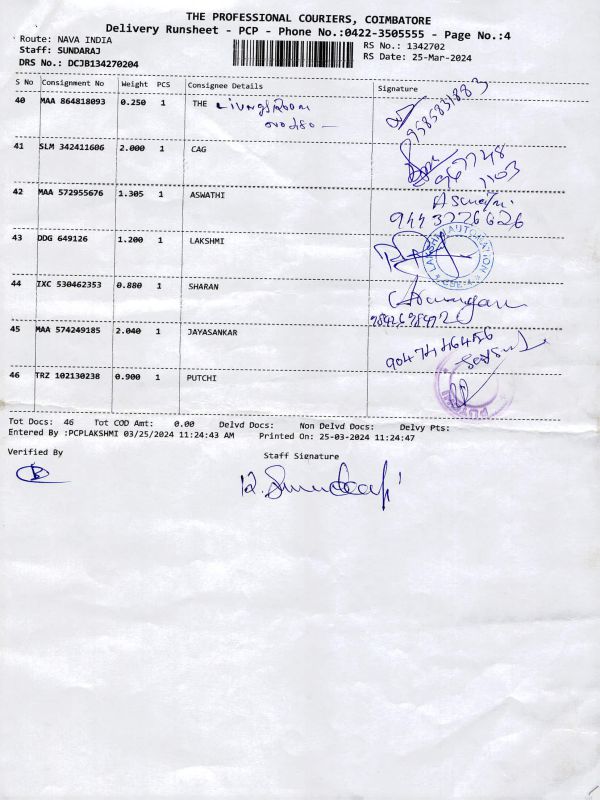 THE PROFESSIONAL COURIERS, COIMBATORE
Delivery Runsheet - PCP - Phone No.:0422-3505555 - Page No.:4
Route: NAVA INDIA
RS No.: 1342702
Staff: SUNDARAJ
RS Date: 25-Mar-2024
DRS No.: DCJB134270204
S No Consignment No Weight PCS Consignee Details Signature
40 MAA 864818093 0.250 1 THE Livingsroom
9585831883
41 SLM 342411606 2.000 1 CAG
42 MAA 572955676 1.305 1 ASWATHI
9443226626
43 DDG 649126 1.200 1 LAKSHMI
LAKSHMI AUTOMATION
44 IXC 530462353 0.880 1 SHARAN
45 MAA 574249185 2.040 1 JAYASANKAR
46 TRZ 102130238 0.900 1 PUTCHI
Tot Docs: 46 Tot COD Amt: 0.00 Delvd Docs: Non Delvd Docs: Delvy Pts:
Entered By :PCPLAKSHMI 03/25/2024 11:24:43 AM Printed On: 25-03-2024 11:24:47
Verified By
Staff Signature